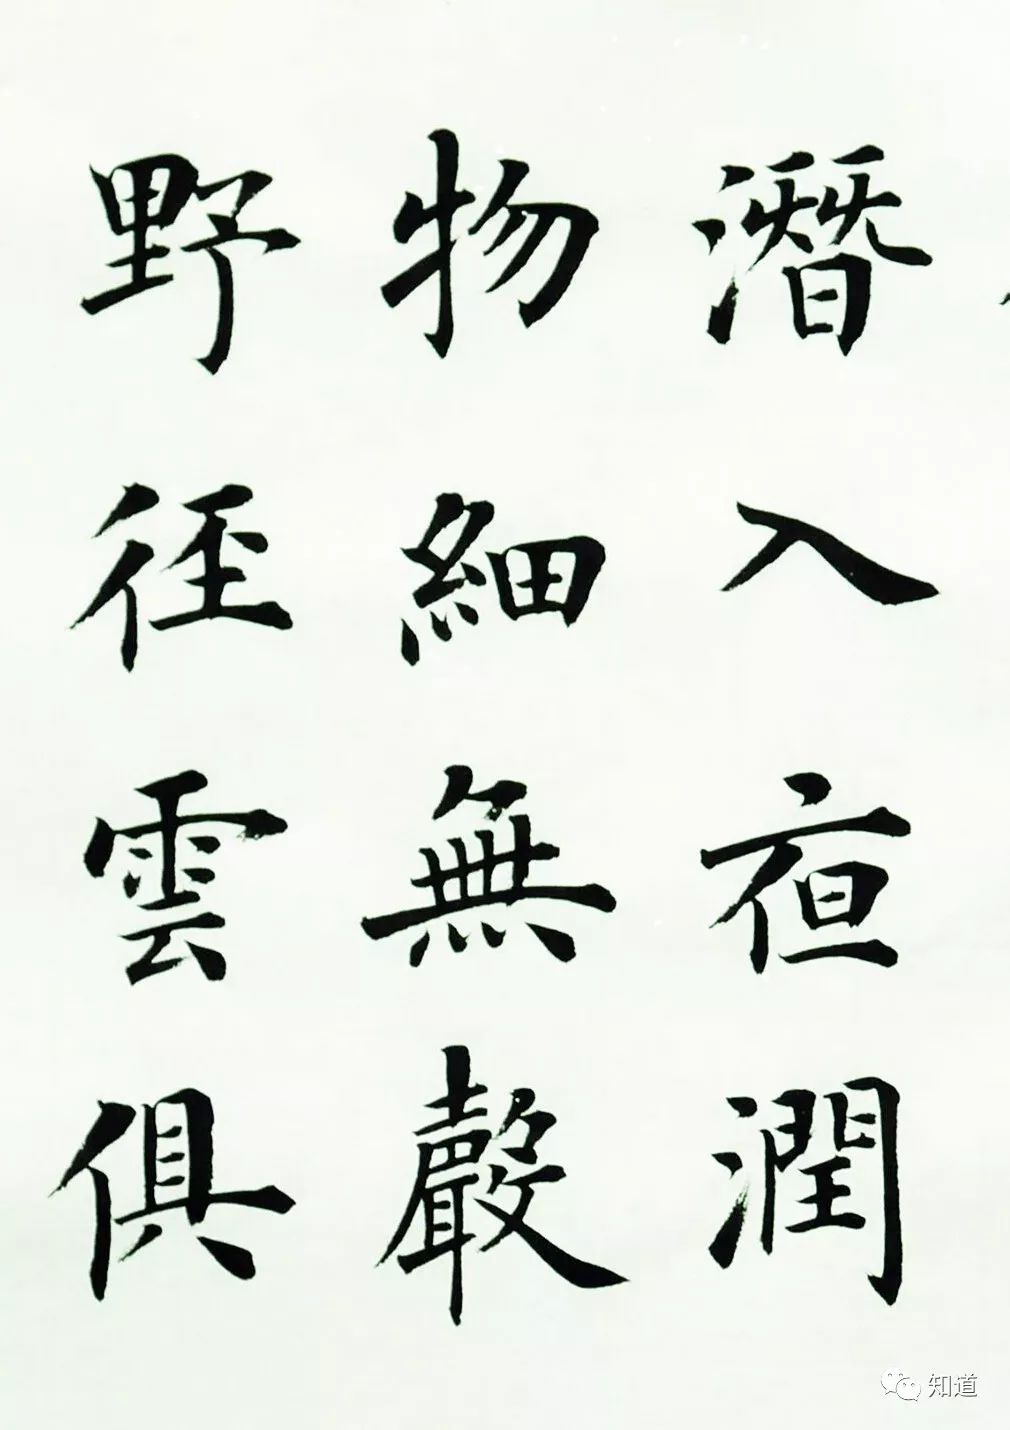 潛入亱潤
物細無聲
野徑雲俱
知道